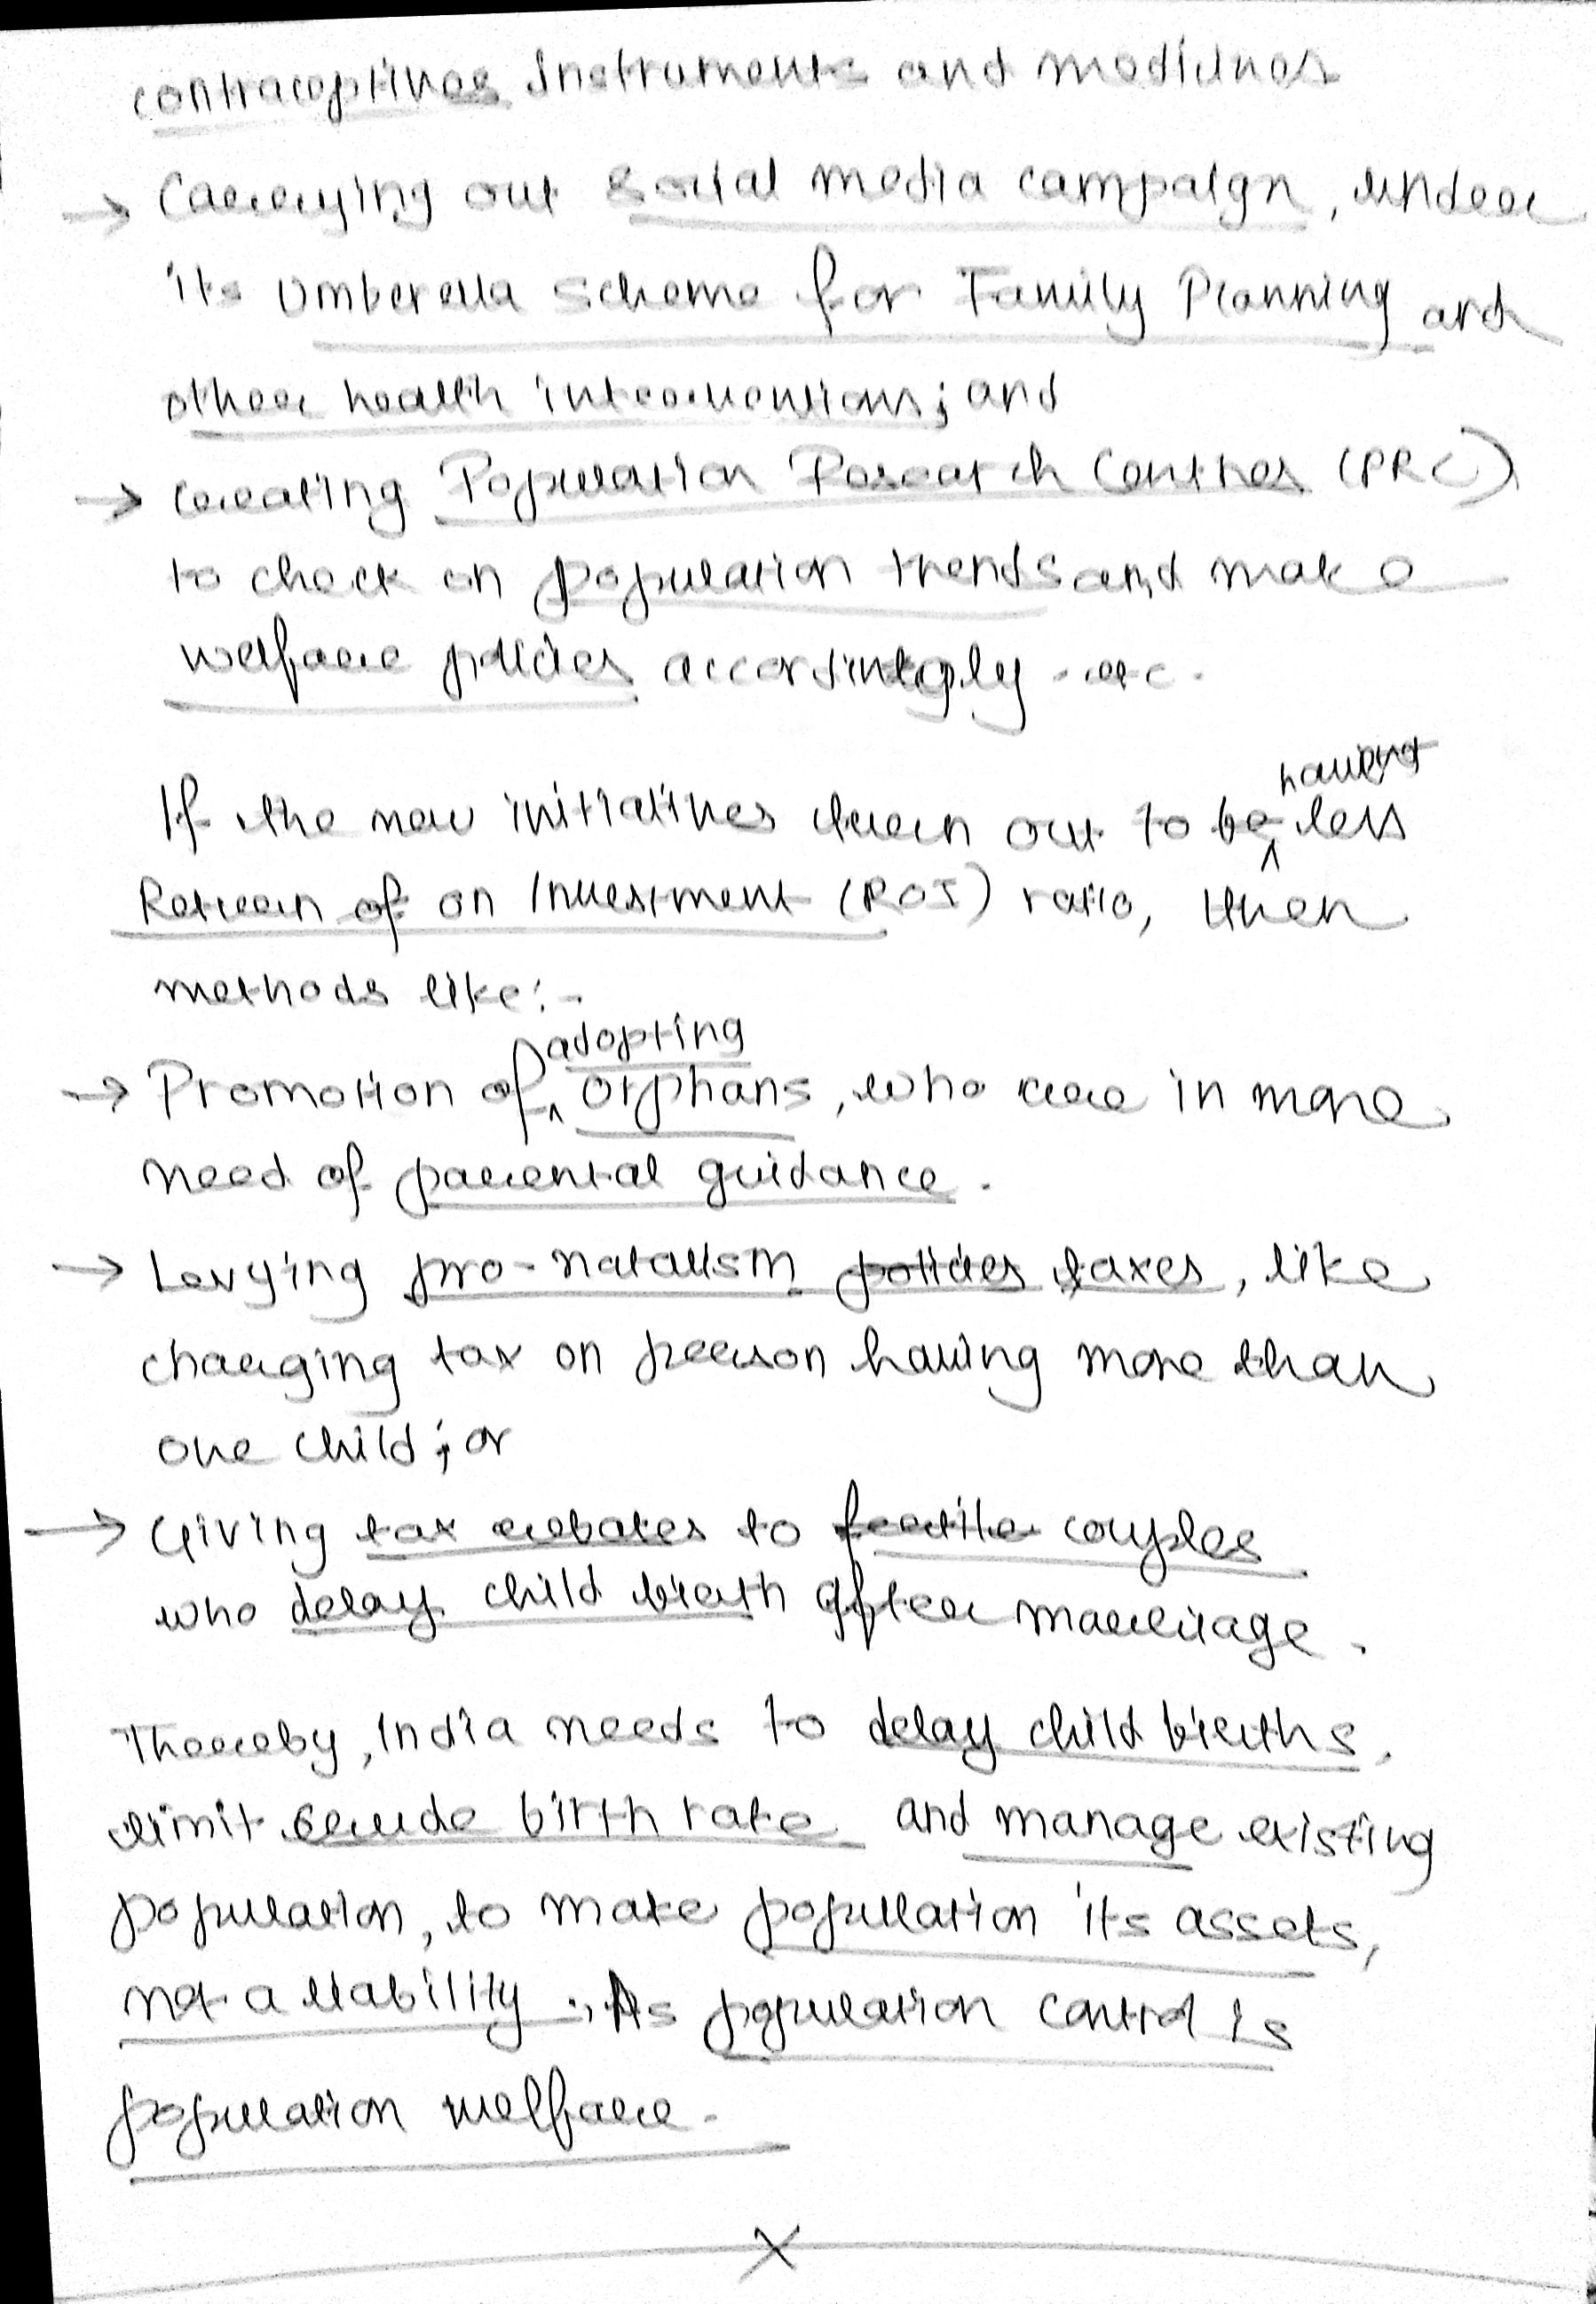 contraceptives Instruments and medicines
→ Carrying out social media campaign, under
its Umberella scheme for Family Planning and
other health interventions; and
→ creating Population Research Centres (PRC)
to check on population trends and make
welfare policies accordingly. etc.
having
If the new initiatives turn out to be less
Return of on Investment (ROI) ratio, then
methods like:-
adopting
→ Promotion of orphans, who are in more
need of parental guidance.
→ Levying pro-natalism policies taxes, like
charging tax on person having more than
one child; or
→ Giving tax rebates to fertile couples
who delay child birth after marriage.
Thereby, India needs to delay child births,
limit crude birth rate and manage existing
population, to make population its assets,
not a liability. As population control is
population welfare.
X